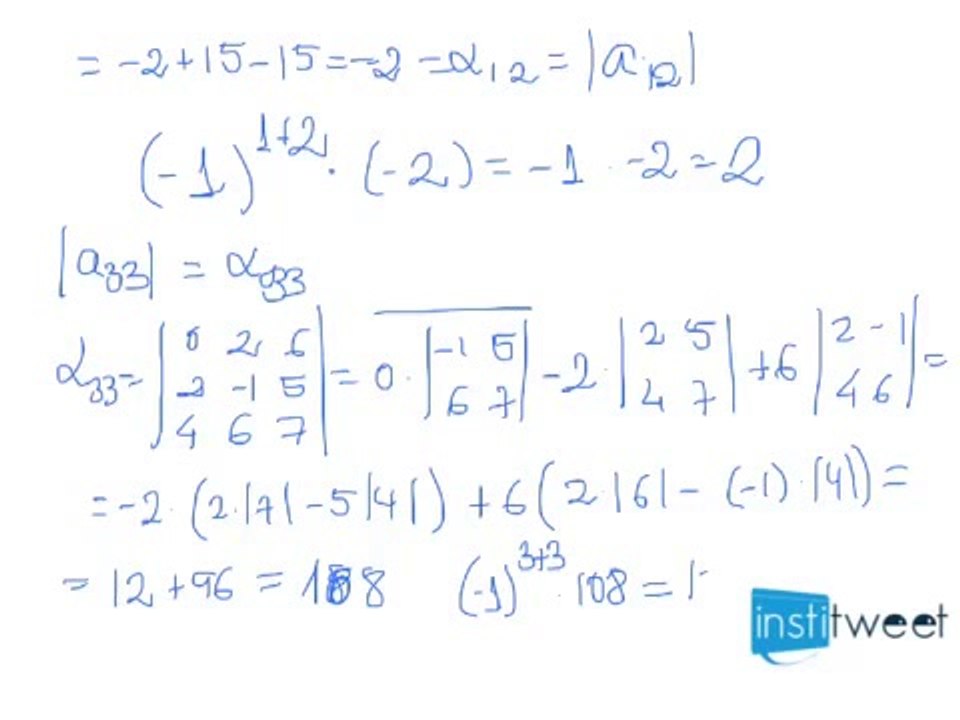 = -2+15-15=-2 = α12 = |a12|
(-1)^1+2 · (-2) = -1 · -2 = 2
|a33| = α33
α33= |0 2 6| = 0 · |-1 5| -2 · |2 5| +6 |2 -1| =
|2 -1 5| |6 7| |4 7| |4 6|
|4 6 7|
= -2 · (2·|7| - 5|4|) + 6(2|6| - (-1)·|4|) =
= 12 + 96 = 108 (-1)^3+3 · 108 = 1
institweet